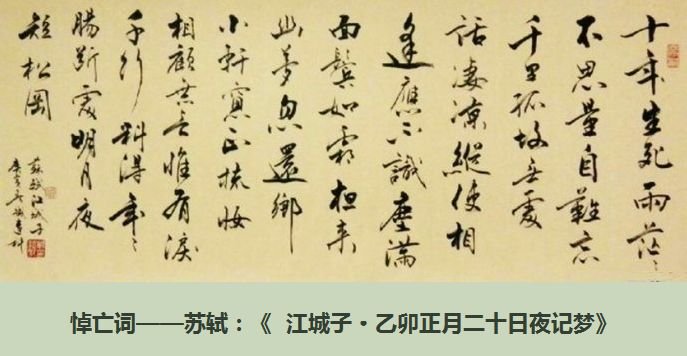 十年生死兩茫〻
不思量自難忘
千里孤坟无處
話凄凉縱使相
逢應不識塵滿
面鬢如霜夜来
幽夢忽還鄉
小軒窗正梳妝
相顧無言惟有淚
千行料得年〻
腸斷處明月夜
短松岡
蘇軾江城子
悼亡词——苏轼：《 江城子·乙卯正月二十日夜记梦》